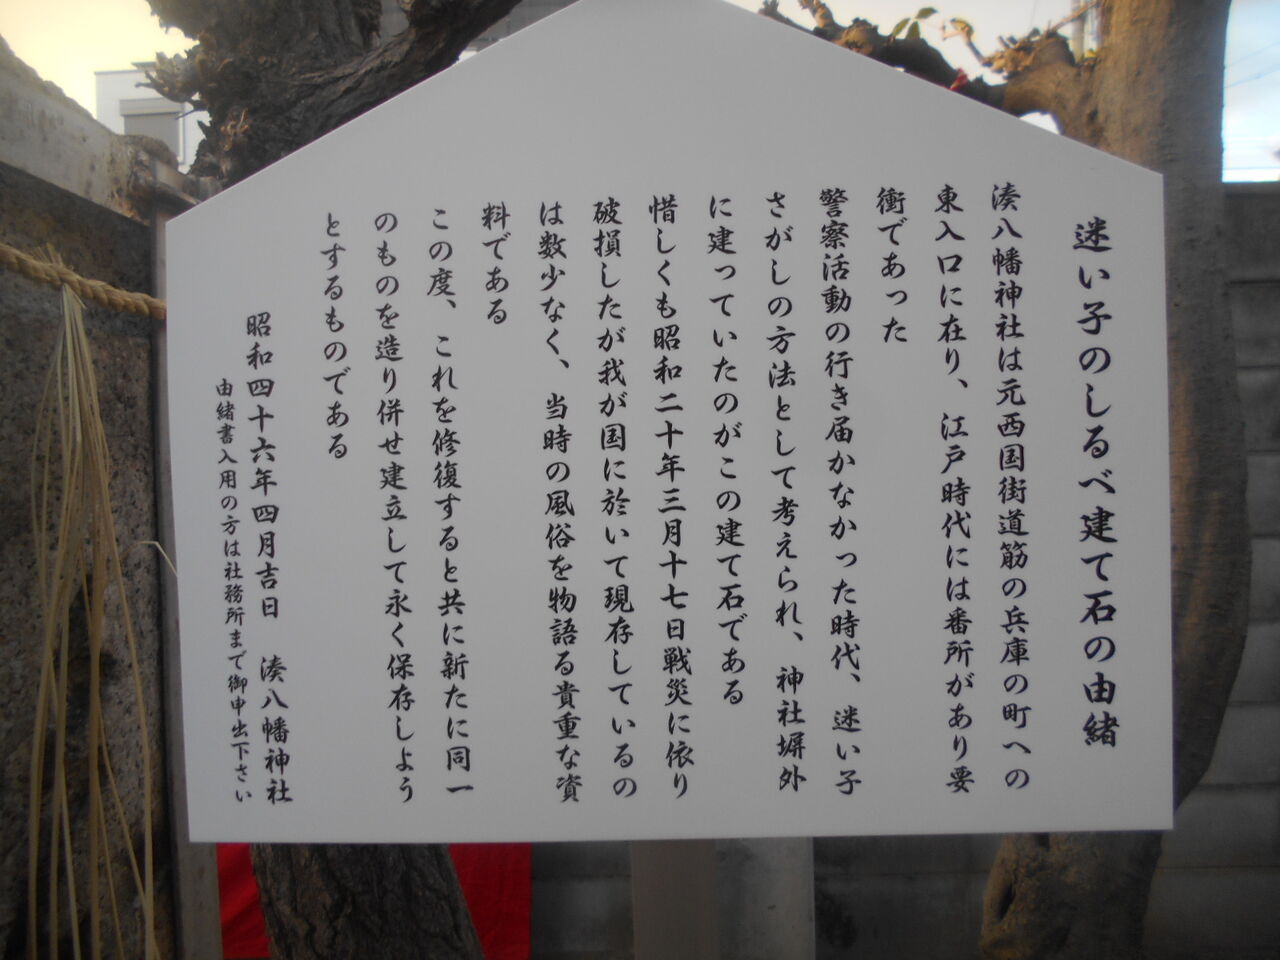 迷い子のしるべ建て石の由緒
湊八幡神社は元西国街道筋の兵庫の町への
東入口に在り、江戸時代には番所があり要
衝であった
警察活動の行き届かなかった時代、迷い子
さがしの方法として考えられ、神社塀外
に建っていたのがこの建て石である
惜しくも昭和二十年三月十七日戦災に依り
破損したが我が国に於いて現存しているの
は数少なく、当時の風俗を物語る貴重な資
料である
この度、これを修復すると共に新たに同一
のものを造り併せ建立して永く保存しよう
とするものである
昭和四十六年四月吉日 湊八幡神社
由緒書入用の方は社務所まで御申出下さい